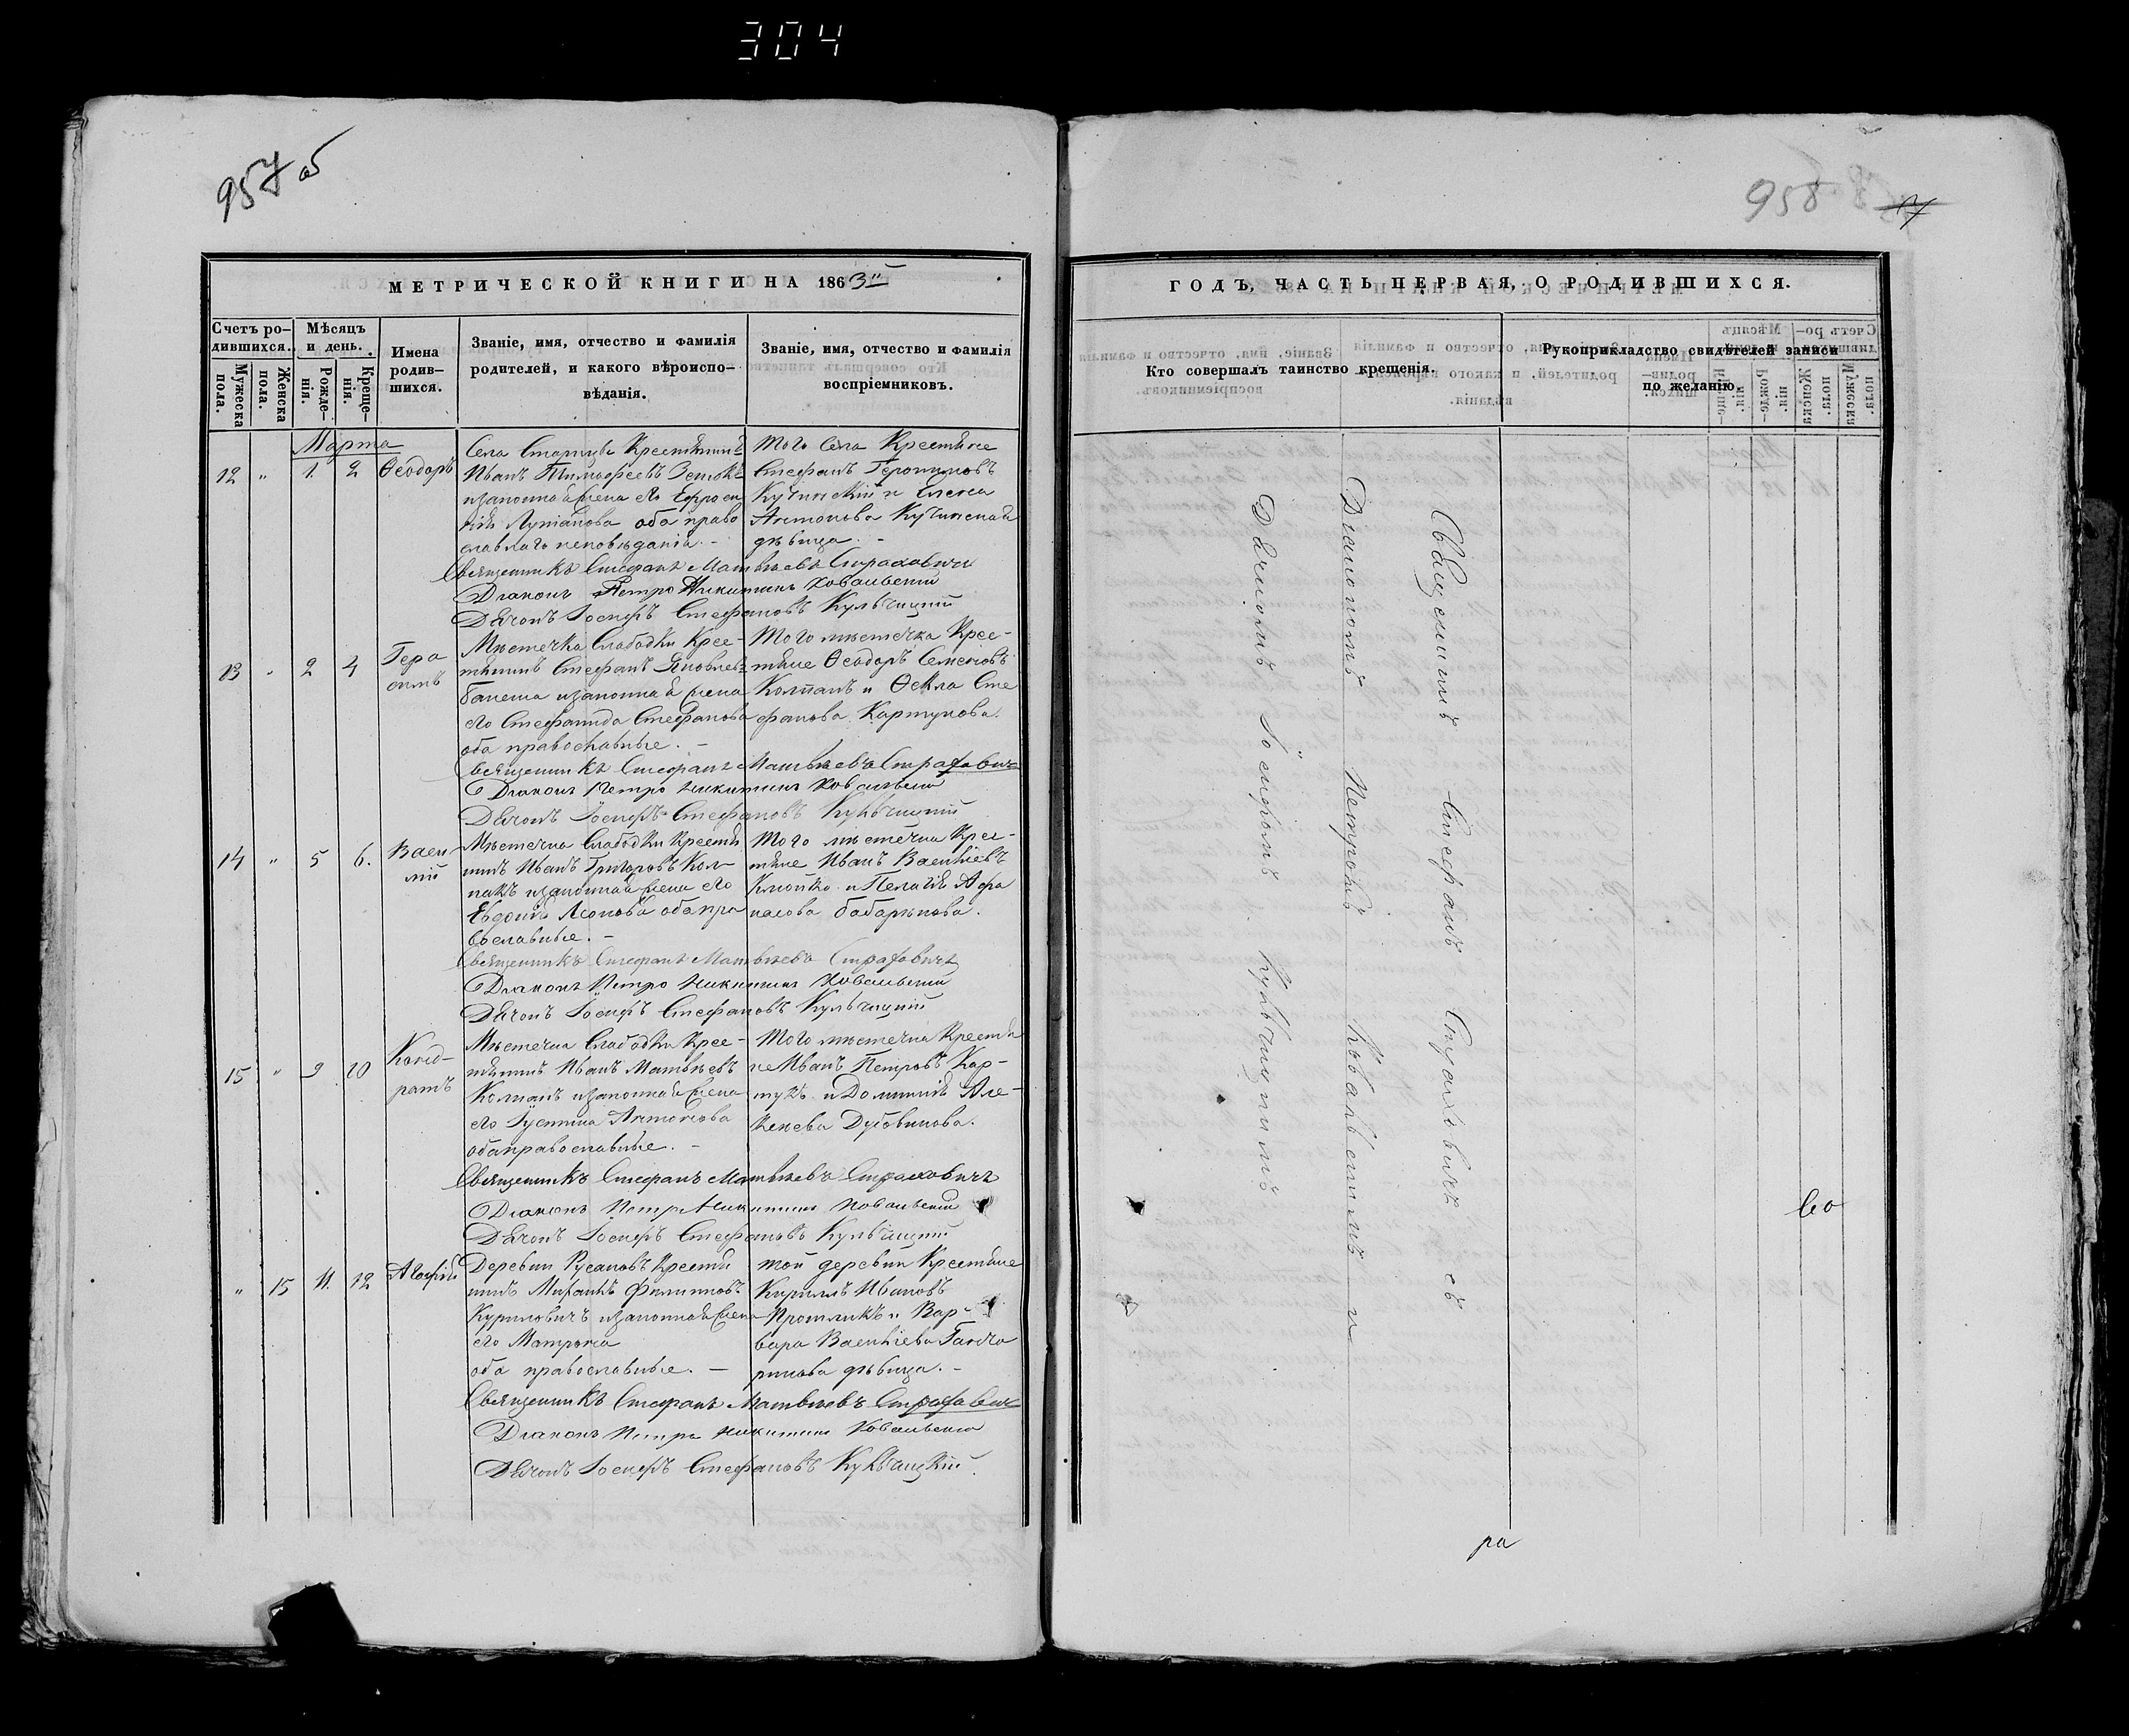 304
957 об
958
МЕТРИЧЕСКОЙ КНИГИ НА 1863й
Счетъ ро-
дившихся.
Мѣсяцъ
и день.
Мужеска
пола.
Женска
пола.
Рожде-
нія.
Креще-
нія.
Имена
родив-
шихся.
Званіе, имя, отчество и фамилія
родителей, и какого вѣроиспо-
вѣданія.
Званіе, имя, отчество и фамилія
воспріемниковъ.
Марта
12 " 1. 2 Ѳеодоръ
Села Старицы Крестьянинъ
Иванъ Тимофеевъ
и законная жена его Ефроси
нія оба право
славнаго исповѣданія. -
Того села Крестьяне
Стефанъ Іеронимовъ
Кучинскій и Елена
Антонова Кучинская
дѣвица. -
Священникъ Стефанъ Матвѣевъ Страховичъ
Діаконъ Петро Никитинъ Ковальскій
Дьячокъ Іосифъ Стефановъ Кульчицкій
13 " 2 4 Гера
симъ
Мѣстечка Слабодки Крес-
тьянинъ Стефанъ Яковлевъ
и законная жена
его Стефанида Стефанова
оба православные. -
Того мѣстечка Крес-
тьяне Ѳеодоръ Семеновъ
Колпакъ и Ѳекла Сте
фанова Картунова.
Священникъ Стефанъ Матвѣевъ Страховичъ
Діаконъ Петро Никитинъ Ковальскій
Дьячокъ Іосифъ Стефановъ Кульчицкій
14 " 5 6. Васи
лій
Мѣстечка Слабодки Крестья
нинъ Иванъ Григоровъ Кол-
пакъ и законная жена его
Евдокія Леонова оба пра
вославные. -
Того мѣстечка Крес-
тьяне Иванъ Васильевъ
Клюйко и Пелагія Афа
насова Бабарыкова.
Священникъ Стефанъ Матвѣевъ Страховичъ
Діаконъ Петро Никитинъ Ковальскій
Дьячокъ Іосифъ Стефановъ Кульчицкій
15 " 9 10 Конд-
ратъ
Мѣстечка Слабодки Крес-
тьянинъ Иванъ Матвѣевъ
Колпакъ и законная жена
его Іустина Антонова
оба православные. -
Того мѣстечка Крестья
не Иванъ Петровъ Кар-
тухъ и Доминика Але-
ксеева Дубовикова.
Священникъ Стефанъ Матвѣевъ Страховичъ
Діаконъ Петръ Никитинъ Ковальскій
Дьячокъ Іосифъ Стефановъ Кульчицкій
" 15 11. 12 Агафія
Деревни Русаковъ Крестья
нинъ Михаилъ Филиповъ
Куриловичъ и законная жена
его Матрона
оба православные. -
той деревни Крестьяне
Кириллъ Ивановъ
и Вар-
вара Васильева Ганча
рикова дѣвица. -
Священникъ Стефанъ Матвѣевъ Страховичъ
Діаконъ Петръ Никитинъ Ковальскій
Дьячокъ Іосифъ Стефановъ Кульчицкій
ГОДЪ, ЧАСТЬ ПЕРВАЯ, О РОДИВШИХСЯ.
Кто совершалъ таинство крещенія.
Рукоприкладство свидѣтелей записи
по желанію.
Священникъ Стефанъ Страховичъ съ
Діакономъ Петромъ Ковальскимъ и
Дьячкомъ Іосифомъ Кульчицкимъ
во
ра